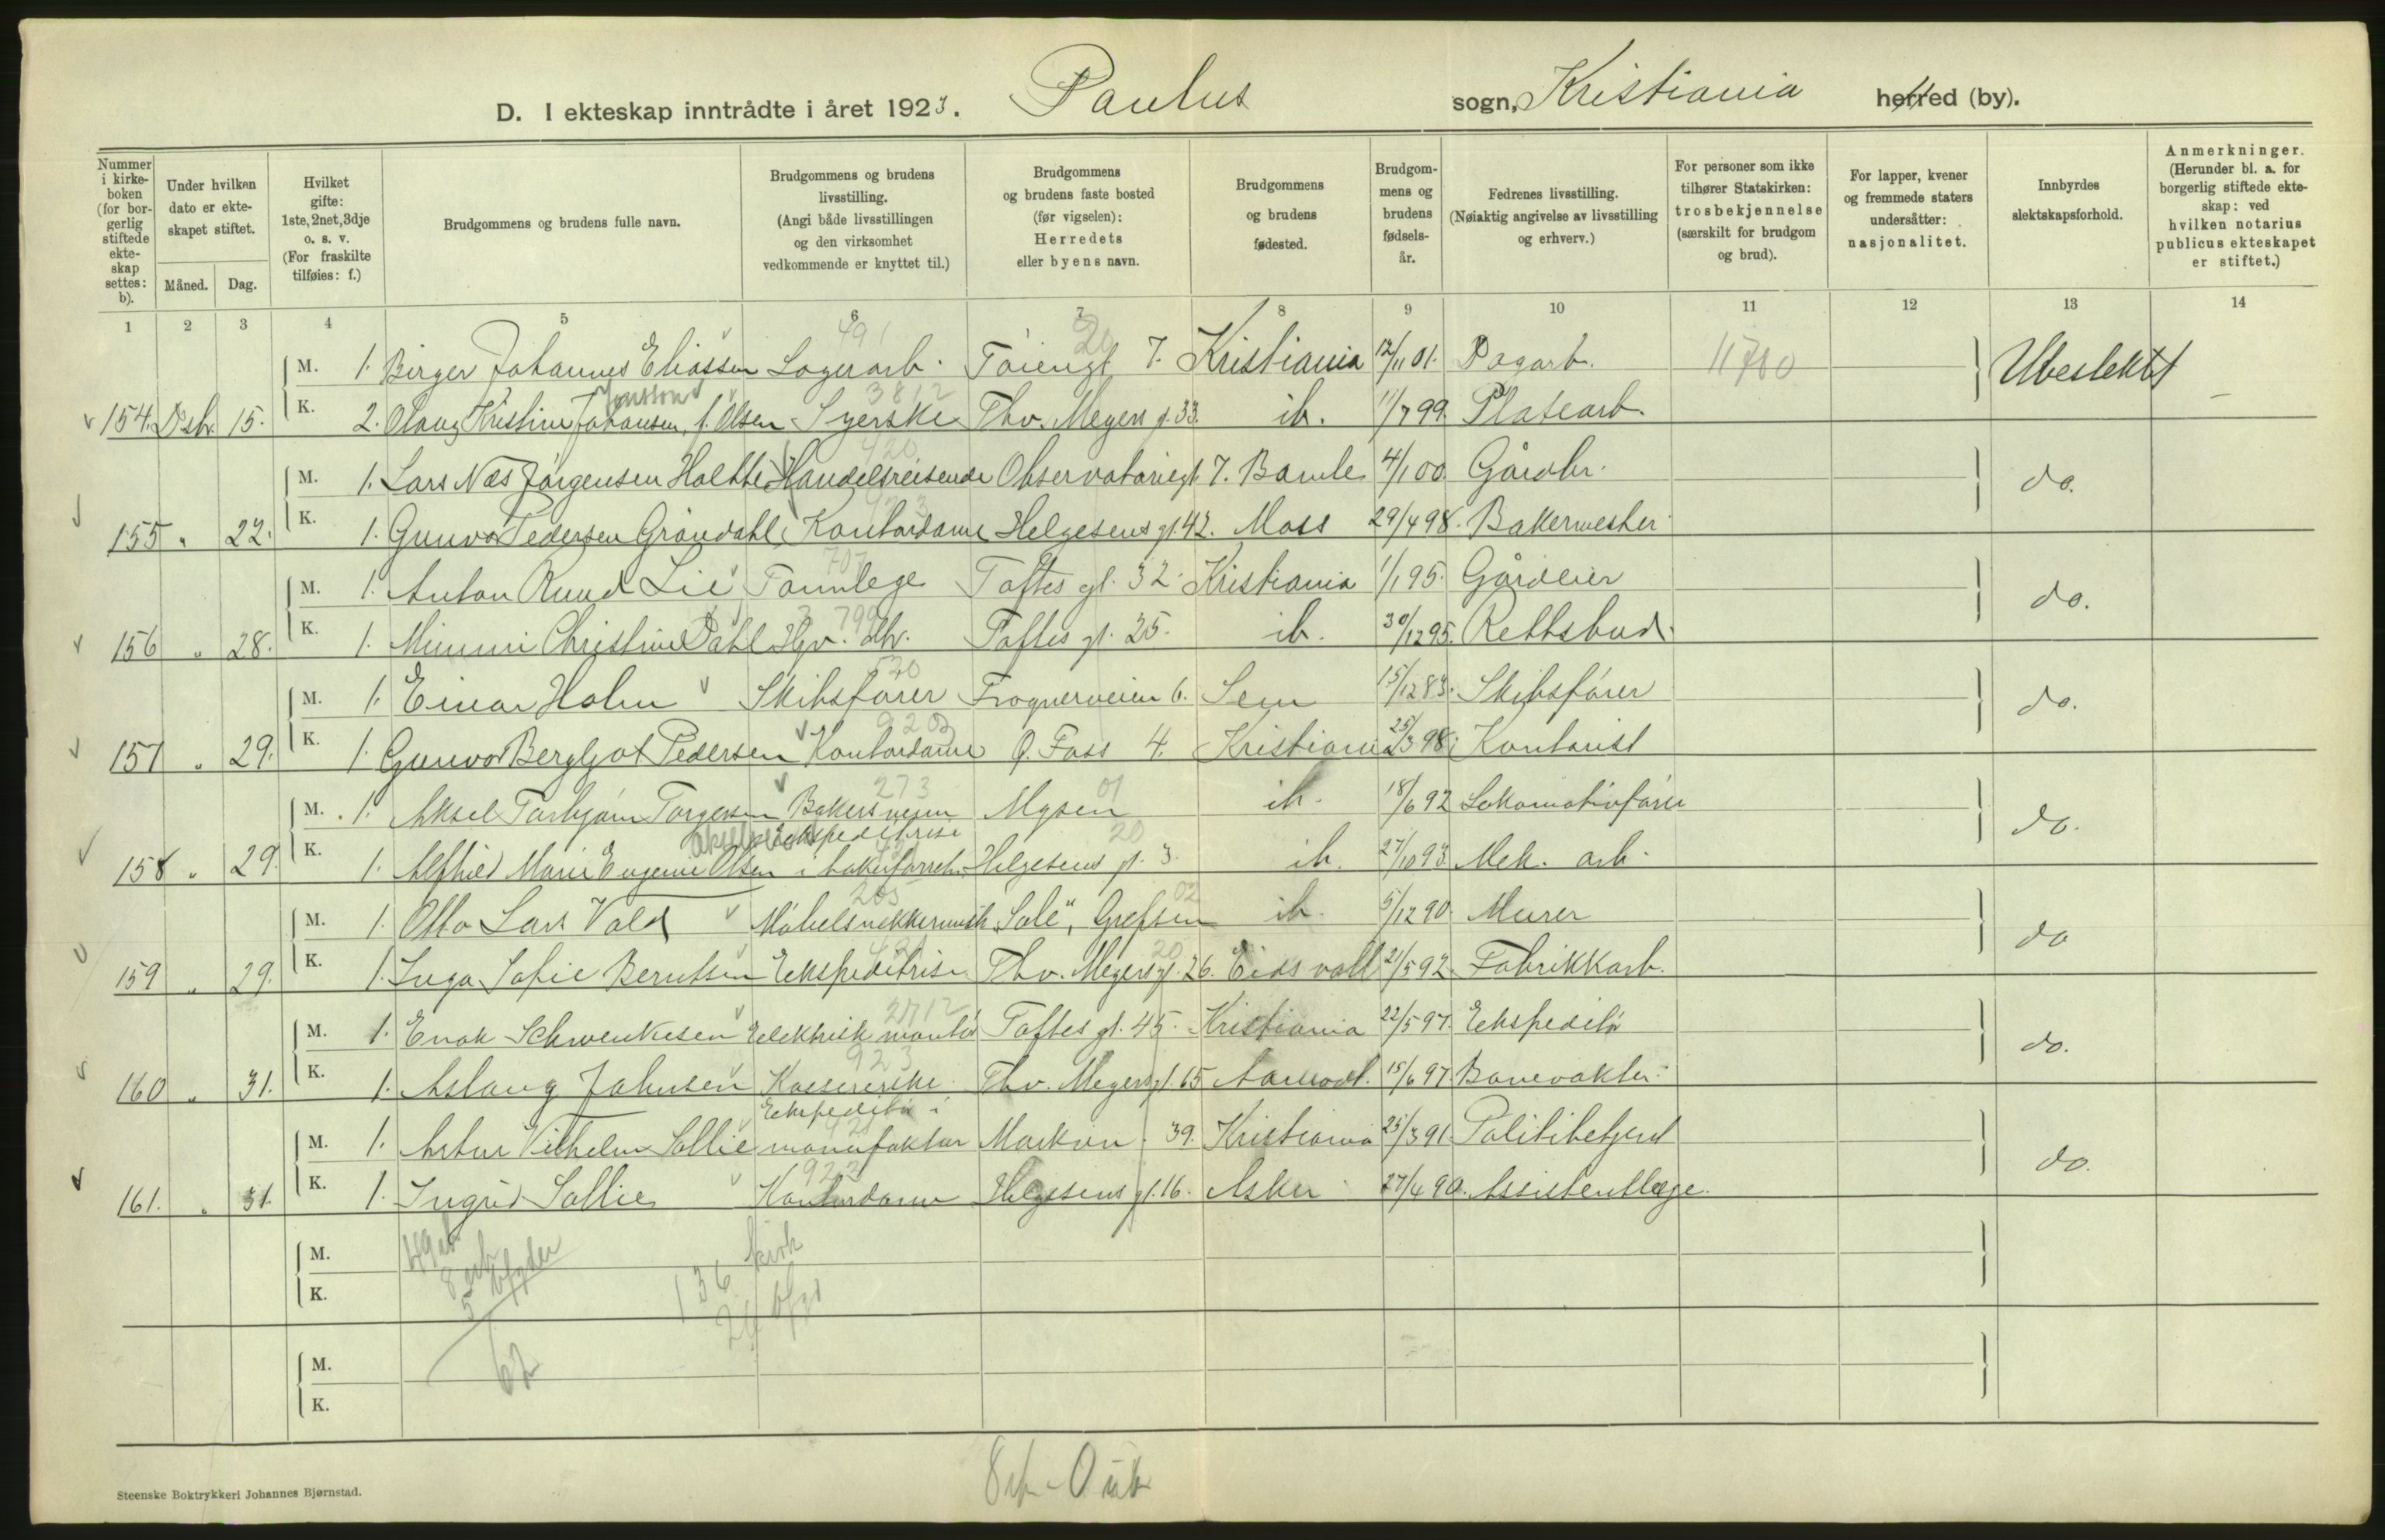 D. I ekteskap inntrådte i året 1923. Paulus sogn, Kristiania herred (by).
Nummer i kirkeboken (for borgerlig stiftede ekteskap settes: b).
Under hvilken dato er ekteskapet stiftet.
Måned. Dag.
Hvilket gifte: 1ste, 2net, 3dje o. s. v. (For fraskilte tilføies: f.)
Brudgommens og brudens fulle navn.
Brudgommens og brudens livsstilling. (Angi både livsstillingen og den virksomhet vedkommende er knyttet til.)
Brudgommens og brudens faste bosted (før vigselen): Herredets eller byens navn.
Brudgommens og brudens fødested.
Brudgommens og brudens fødselsår.
Fedrenes livsstilling. (Nøiaktig angivelse av livsstilling og erhverv.)
For personer som ikke tilhører Statskirken: trosbekjennelse (særskilt for brudgom og brud).
For lapper, kvener og fremmede staters undersåtter: nasjonalitet.
Innbyrdes slektskapsforhold.
Anmerkninger. (Herunder bl. a. for borgerlig stiftede ekteskap: ved hvilken notarius publicus ekteskapet er stiftet.)
1 2 3 4 5 6 7 8 9 10 11 12 13 14
491 20
M. 1. Birger Johannes Eliassen Lagerarb. Tøiengt 7. Kristiania 12/11 01. Dagarb. 11780 Ubeslektet
3812
154. Dsbr. 15. K. 2. Olaug Kristine Johansen, f. Olsen Syerske Thv. Meyers g. 33. ib. 11/7 99. Platearb. –
420
M. 1. Lars Næs Jörgensen Holtte Handelsreisende Observatoriegt. 7. Bamle 4/1 00. Gårdbr. do.
923
155 " 22. K. 1. Gunvor Pedersen Gröndahl Kontordame Helgesens gt. 42. Moss 29/4 98. Bakermester
707
M. 1. Anton Ruud Lie Tannlege Toftes gt. 32. Kristiania 1/1 95. Gårdeier do.
799
156 " 28. K. 1. Mimmi Christine Dahl Hjv. dtr. Toftes gt. 25. ib. 30/12 95. Rettsbud.
520
M. 1. Einar Holm Skibsfører Frognerveien 6. Sem 15/12 83. Skibsfører do.
923
157 " 29. K. 1. Gunvor Bergljot Pedersen Kontordame O. Foss 4. Kristiania 25/3 98. Kontorist
273 01
M. 1. Aksel Torbjørn Torgersen Bakersvenn Mysen ib. 18/6 92 Lokomotivfører do.
Ekspeditrise 20
158 " 29. K. 1. Alfhild Marie Eugenie Olsen i bakerforretn. Helgesens gt. 3. ib. 27/10 93. Mek. arb.
205 02
M. 1. Otto Lars Vold Møbelsnekkermstr. "Solé", Grefsen ib. 5/12 90. Murer do
421 20
159 " 29. K. 1. Inga Sofie Berntsen Ekspeditrise Thv. Meyers gt. 26. Eidsvoll 21/5 92. Fabrikkarb.
2712
M. 1. Enok Schwenkesen Elektrisk montør Toftes gt. 45. Kristiania 22/5 97. Ekspeditør do.
923
160 " 31. K. 1. Aslaug Johnsen Kassererske Thv. Meyers gt. 65 Aamodt. 15/6 97. Banevokter.
Ekspeditør i
421
M. 1. Artur Vilhelm Sollie manufaktur Markvn. 39. Kristiania 25/3 91 Politibetjent do.
923
161. " 31. K. 1. Ingrid Sollie Kontordame Helgesens gt. 16. Asker 27/4 90. Assistentlæge.
M.
K.
136 kirk
M.
62
K.
Steenske Boktrykkeri Johannes Bjørnstad.